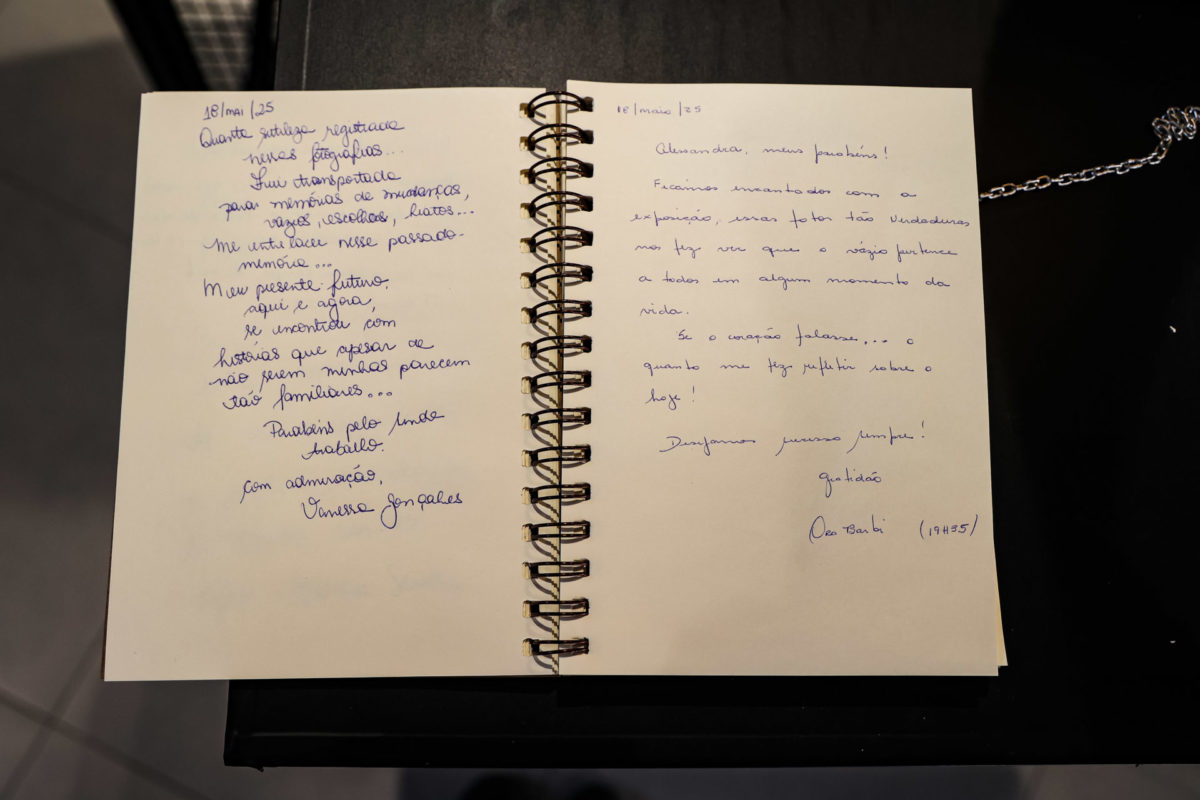 18/mai/25
Quanta sutileza registrada
nessas fotografias...
Fui transportada
para memórias de mudanças,
vazios, escolhas, hiatos...
Me entrelacei nesse passado-
memória...
Meu presente-futuro,
aqui e agora,
se encontrou com
histórias que apesar de
não serem minhas parecem
tão familiares...
Parabéns pelo lindo
trabalho.
com admiração,
Vanessa Gonçalves
18/maio/25
Alessandra, meus parabéns!
Ficamos encantados com a
exposição, essas fotos tão verdadeiras
nos fez ver que o vázio pertence
a todos em algum momento da
vida.
Se o coração falasse,... o
quanto me fez refletir sobre o
hoje!
Desejamos sucesso sempre!
Gratidão
Barbi (19H35)